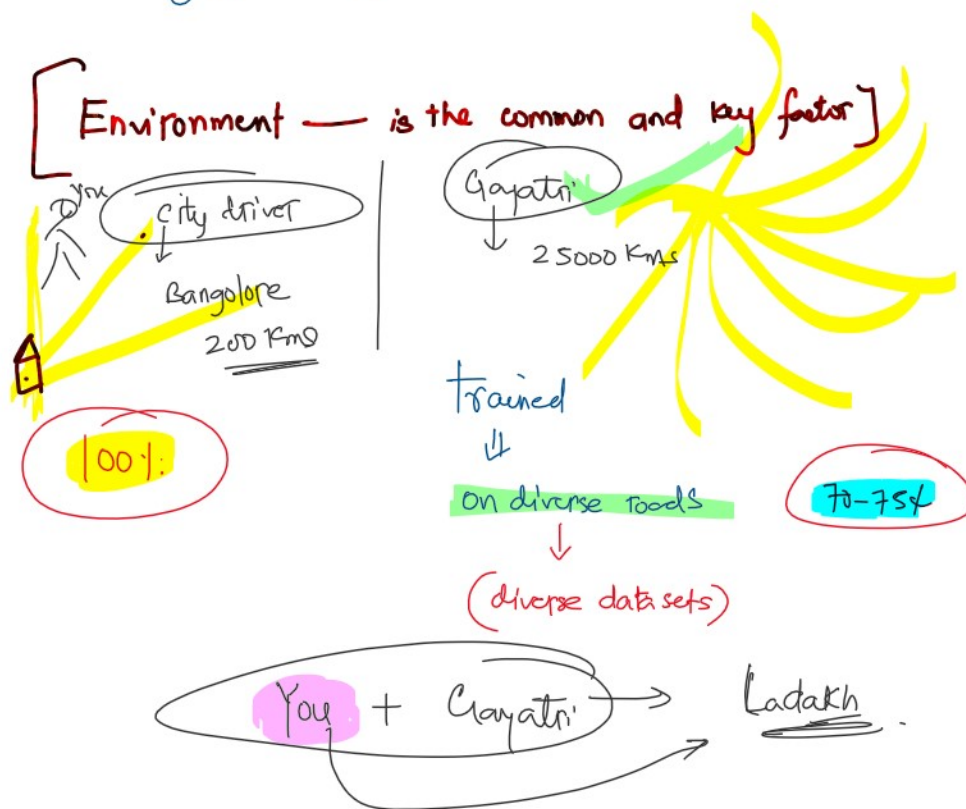 [Environment — is the common and key factor]
You
City driver
Bangolore
200 Kms
100%
Gayatri
25000 Kms
trained
on diverse roads
(diverse datasets)
70-75%
You + Gayatri → Ladakh